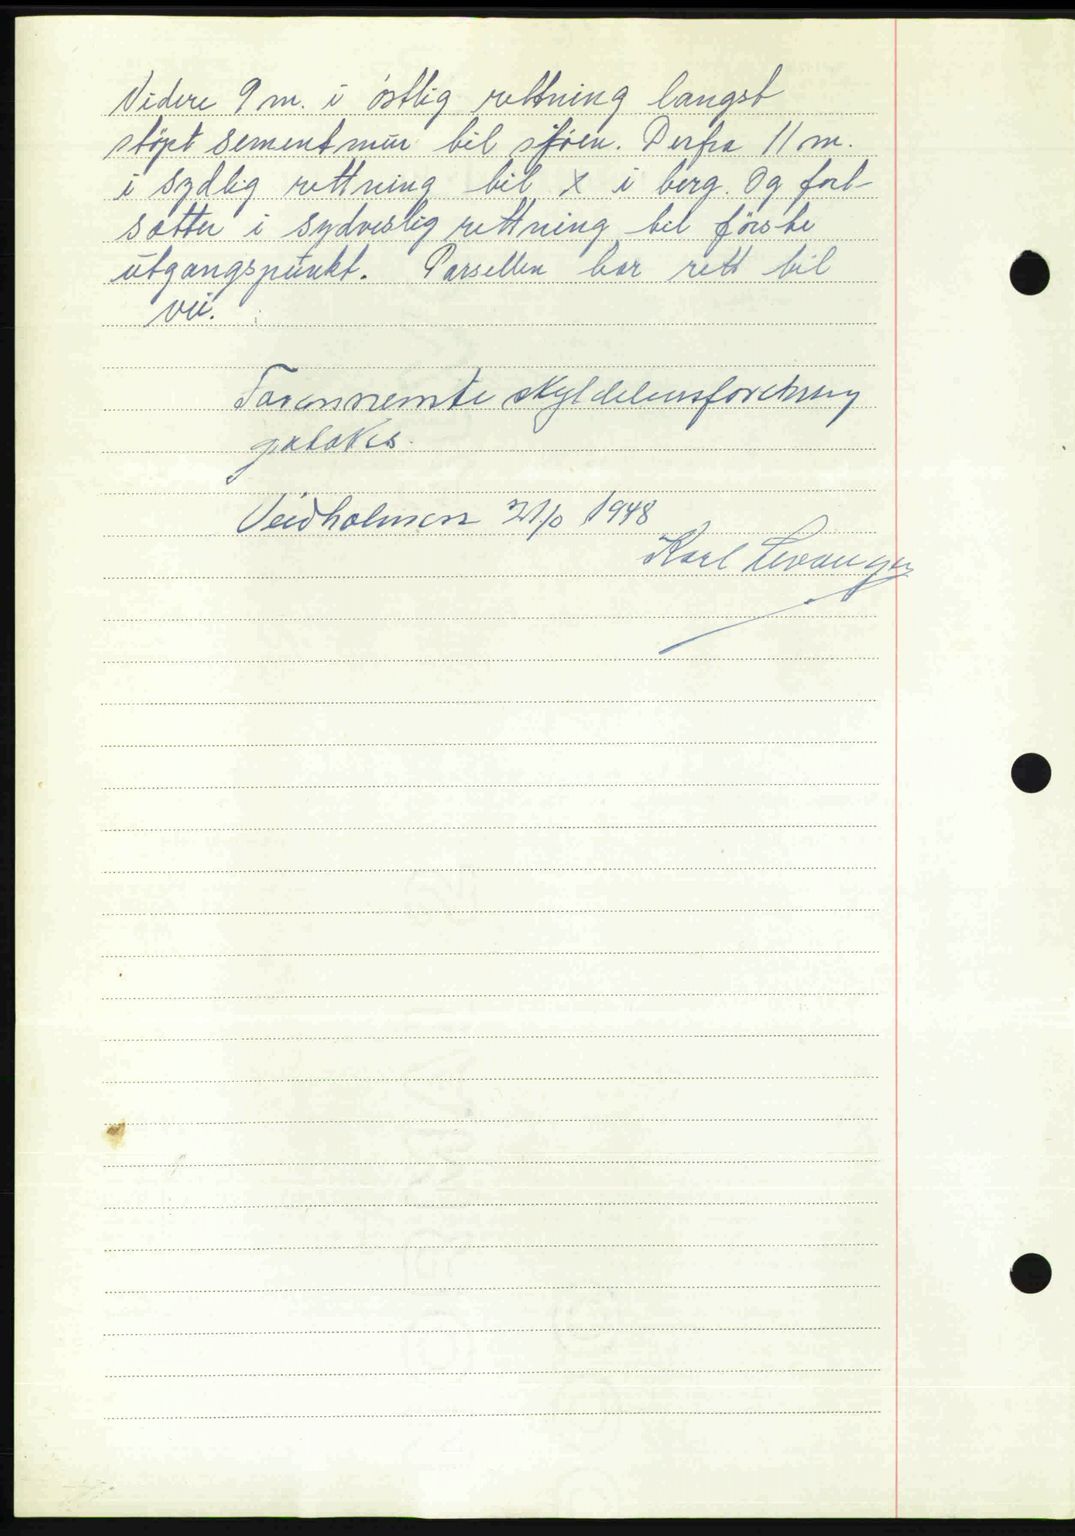 Videre 9 m. i östlig rettning langst
stöpt sementmur til sjöen. Derfra 11 m.
i sydlig rettning til X i berg. Og fort-
sætter i sydvestlig rettning til förste
utgangspunkt. Parsellen har rett til
vei.
Forannemte skyldelensforetning
godtakes.
Veidholmen 1948
Karl Levanger